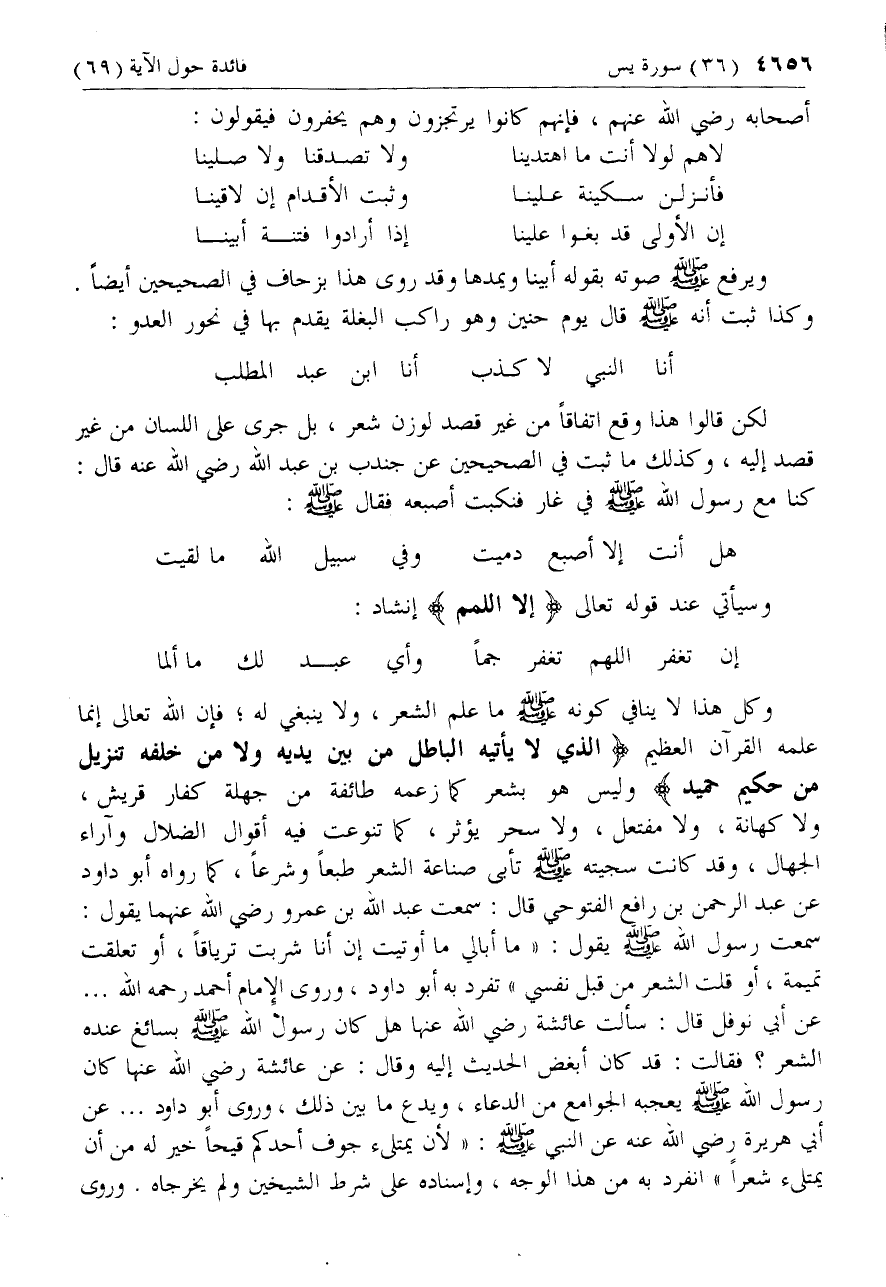 ٤٦٥٦ (٣٦) سورة يس فائدة حول الآية (٦٩)
أصحابه رضي الله عنهم ، فإنهم كانوا يرتجزون وهم يحفرون فيقولون :
لاهم لولا أنت ما اهتدينا ولا تصدقنا ولا صلينا
فأنزلن سكينة علينا وثبت الأقدام إن لاقينا
إن الأولى قد بغوا علينا إذا أرادوا فتنة أبينا
ويرفع ﷺ صوته بقوله أبينا ويمدها وقد روى هذا بزحاف في الصحيحين أيضاً .
وكذا ثبت أنه ﷺ قال يوم حنين وهو راكب البغلة يقدم بها في نحور العدو :
أنا النبي لا كذب أنا ابن عبد المطلب
لكن قالوا هذا وقع اتفاقاً من غير قصد لوزن شعر ، بل جرى على اللسان من غير
قصد إليه ، وكذلك ما ثبت في الصحيحين عن جندب بن عبد الله رضي الله عنه قال :
كنا مع رسول الله ﷺ في غار فنكبت أصبعه فقال ﷺ :
هل أنت إلا أصبع دميت وفي سبيل الله ما لقيت
وسيأتي عند قوله تعالى ﴿ إلا اللمم ﴾ إنشاد :
إن تغفر اللهم تغفر جماً وأي عبد لك ما ألما
وكل هذا لا ينافي كونه ﷺ ما علم الشعر ، ولا ينبغي له ؛ فإن الله تعالى إنما
علمه القرآن العظيم ﴿ الذي لا يأتيه الباطل من بين يديه ولا من خلفه تنزيل
من حكيم حميد ﴾ وليس هو بشعر كما زعمه طائفة من جهلة كفار قريش ،
ولا كهانة ، ولا مفتعل ، ولا سحر يؤثر ، كما تنوعت فيه أقوال الضلال وآراء
الجهال ، وقد كانت سجيته ﷺ تأبى صناعة الشعر طبعاً وشرعاً ، كما رواه أبو داود
عن عبد الرحمن بن رافع الفتوحي قال : سمعت عبد الله بن عمرو رضي الله عنهما يقول :
سمعت رسول الله ﷺ يقول : « ما أبالي ما أوتيت إن أنا شربت ترياقاً ، أو تعلقت
تميمة ، أو قلت الشعر من قبل نفسي » تفرد به أبو داود ، وروى الإمام أحمد رحمه الله ...
عن أبي نوفل قال : سألت عائشة رضي الله عنها هل كان رسول الله ﷺ بسائغ عنده
الشعر ؟ فقالت : قد كان أبغض الحديث إليه وقال : عن عائشة رضي الله عنها كان
رسول الله ﷺ يعجبه الجوامع من الدعاء ، ويدع ما بين ذلك ، وروى أبو داود ... عن
أبي هريرة رضي الله عنه عن النبي ﷺ : « لأن يمتلىء جوف أحدكم قيحاً خير له من أن
يمتلىء شعراً » انفرد به من هذا الوجه ، وإسناده على شرط الشيخين ولم يخرجاه . وروى